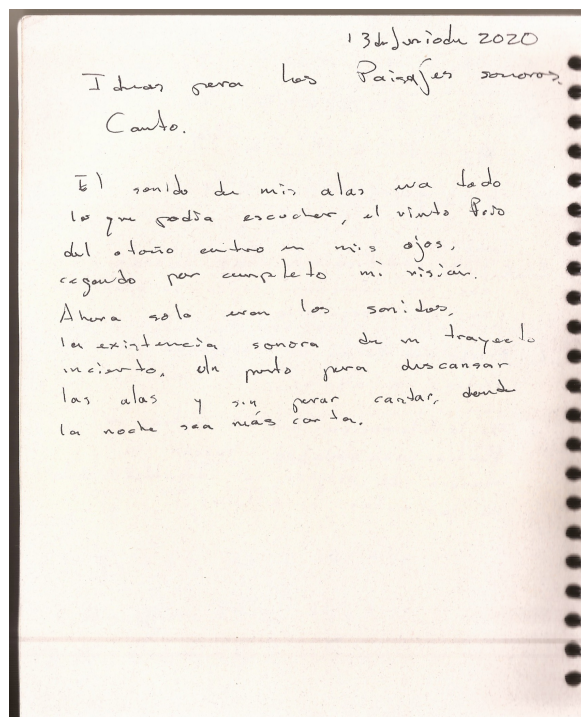 13 de Junio de 2020
Ideas para los Paisajes sonoros.
Canto.
El sonido de mis alas era todo
lo que podía escuchar, el viento frio
del otoño entro en mis ojos,
cegando por completo mi visión.
Ahora solo eran los sonidos,
la existencia sonora de un trayecto
incierto. Un punto para descansar
las alas y sin parar cantar, donde
la noche sea más corta.